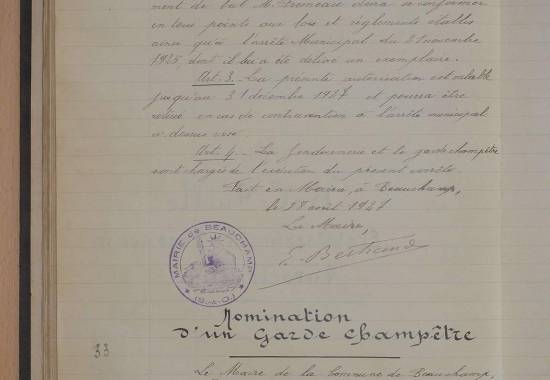 ment de bal M. Fruneau devra se conformer
en tous points aux lois et règlements établis
ainsi qu'à l'arrêté Municipal du 2 novembre
1925, dont il lui a été délivré un exemplaire.
Art. 3._ La présente autorisation est valable
jusqu'au 31 décembre 1927 et pourra être
retirée en cas de contravention à l'arrêté municipal
ci-dessus visé.
Art. 4_ La Gendarmerie et le garde champêtre
sont chargés de l'exécution du présent arrêté
Fait en Mairie, à Beauchamp,
le 28 août 1927
Le Maire,
E. Bertrand
MAIRIE de BEAUCHAMP
(S.-&-O.)
Nomination
d'un Garde champêtre
33
Le Maire de la Commune de Beauchamp,